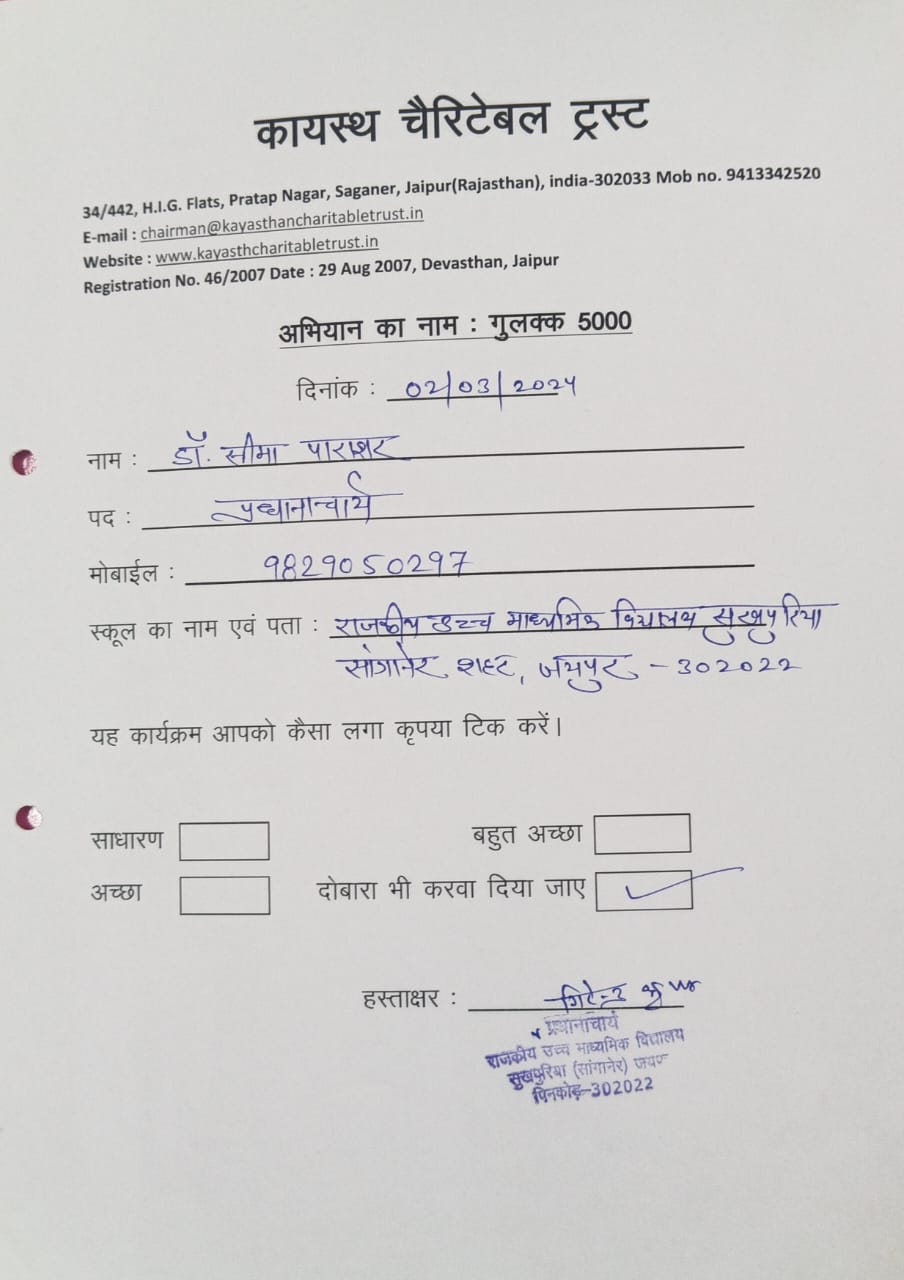 कायस्थ चैरिटेबल ट्रस्ट
34/442, H.I.G. Flats, Pratap Nagar, Saganer, Jaipur(Rajasthan), india-302033 Mob no. 9413342520
E-mail : chairman@kayasthancharitabletrust.in
Website : www.kayasthcharitabletrust.in
Registration No. 46/2007 Date : 29 Aug 2007, Devasthan, Jaipur
अभियान का नाम : गुलक्क 5000
दिनांक : 02/03/2024
नाम : डॉ. सीमा पाराशर
पद : प्रधानाचार्य
मोबाईल : 9829050297
स्कूल का नाम एवं पता : राजकीय उच्च माध्यमिक विद्यालय सुखपुरिया
सांगानेर शहर, जयपुर - 302022
यह कार्यक्रम आपको कैसा लगा कृपया टिक करें।
साधारण बहुत अच्छा
अच्छा दोबारा भी करवा दिया जाए ✓
हस्ताक्षर :
प्रधानाचार्य
राजकीय उच्च माध्यमिक विद्यालय
सुखपुरिया (सांगानेर)
पिनकोड़-302022